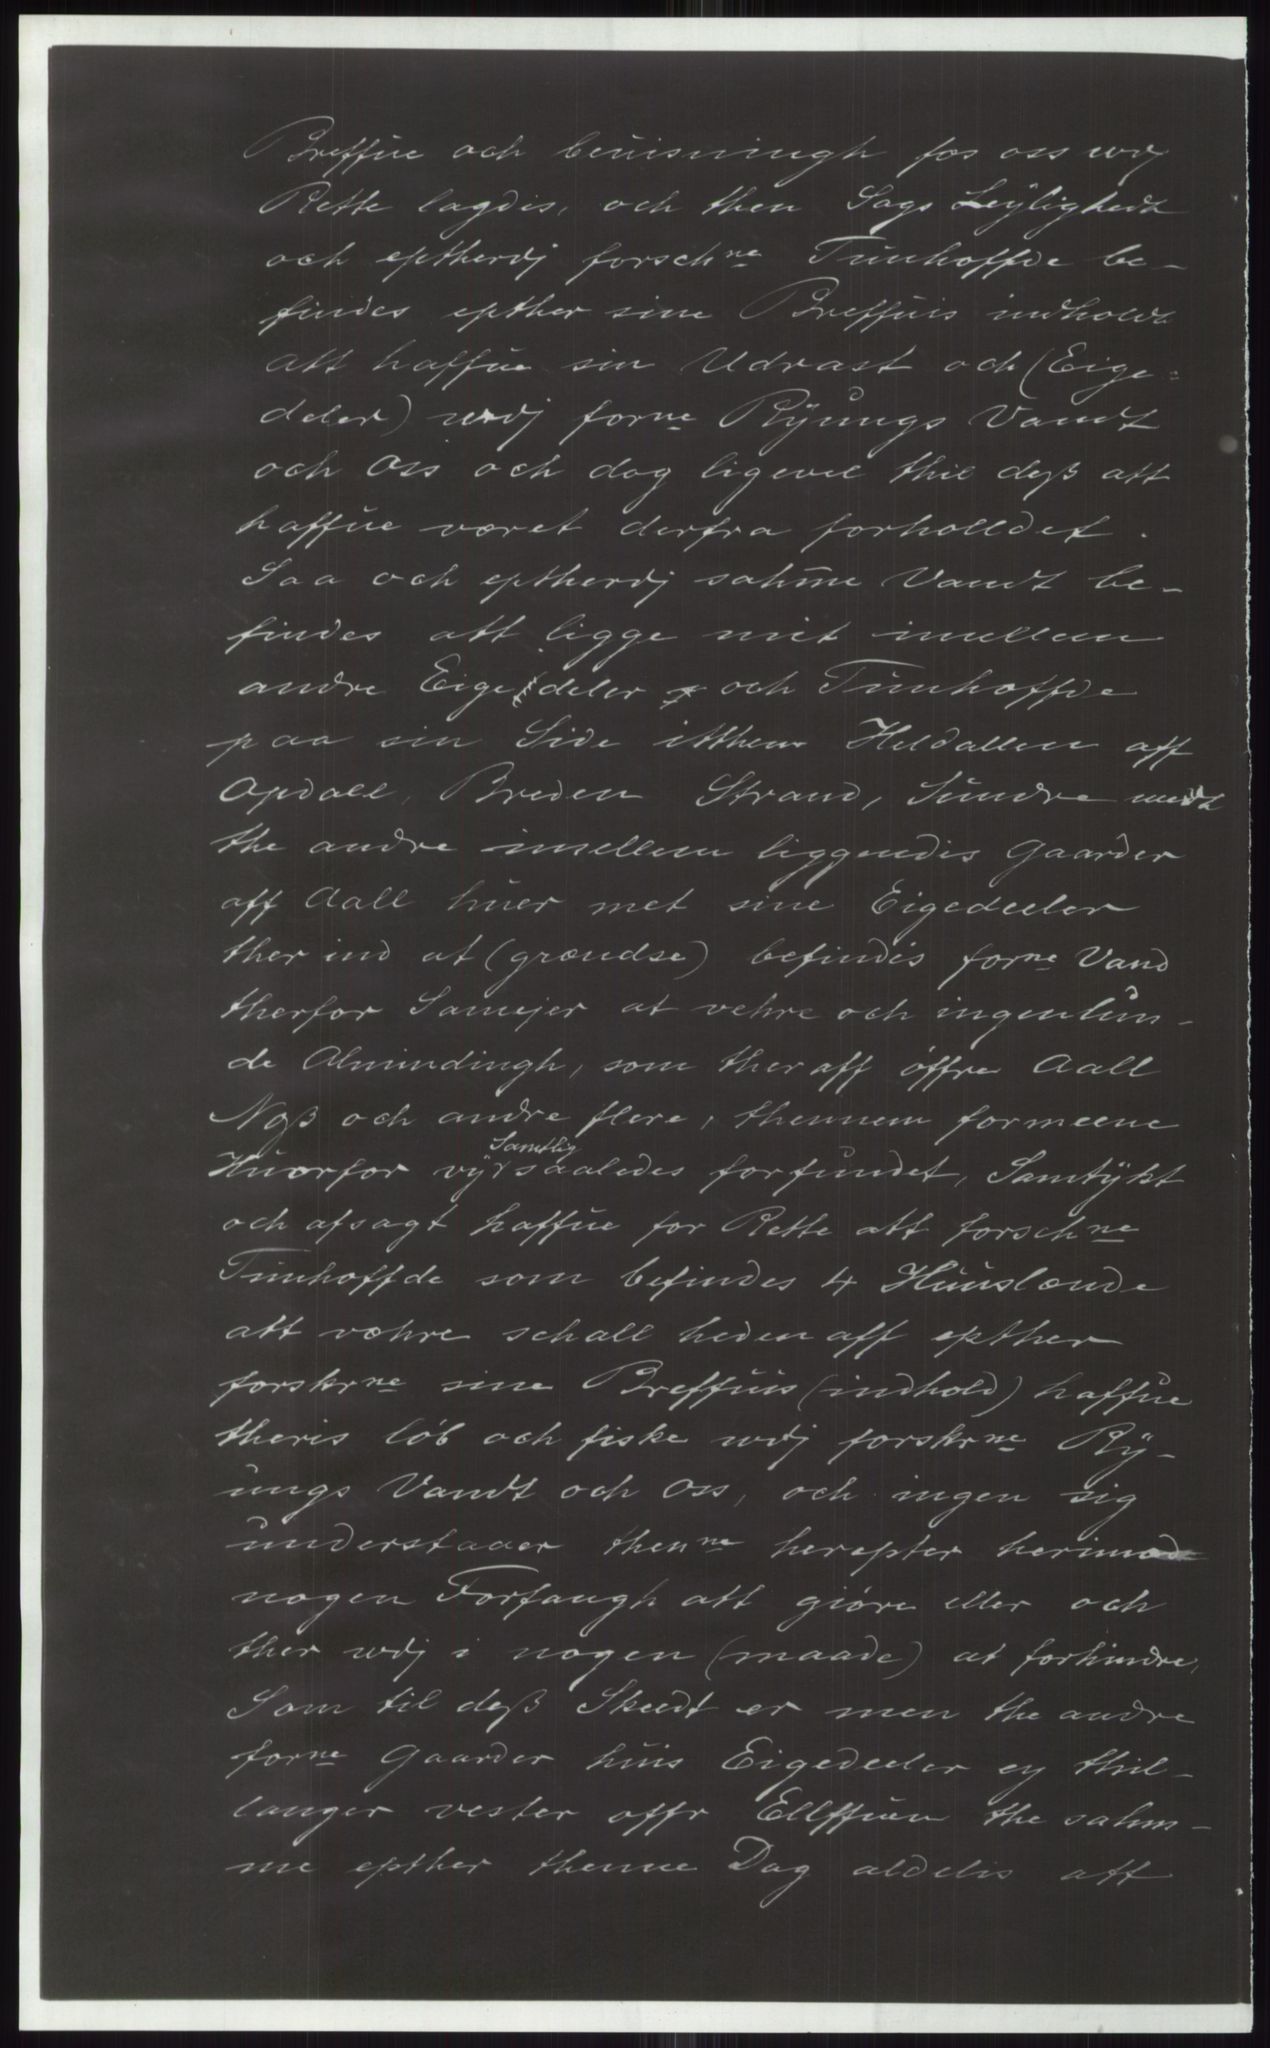 Breffue och beuisningh for oss udj
Rette lagdis, och then Sags Leÿlighedt
och eptherdj forschne Tunhoffde be-
findes epther sine Breffuis indholdt
att haffue sin Udrast och (Eige-
deler) udj forne Rÿungs Vandt
och Oss och dog ligevel thil deß att
haffue været derfra forholldet.
Saa och eptherdj sahme Vandt be-
findes att ligge mit imellem
andre Eigedeler och Tunhoffde
paa sin Side itthem Heldallen aff
Opdall, Breden Strand, Sundre medt
the andre imellem liggendis Gaarder
aff Aall huer met sine Eigedeeler
ther ind at (grændse) befindis forne Vand
therfor Samejer at vehre och ingenlun-
de Almindingh, som ther aff öffre Aall
Neß och andre flere, thennem formeene
Huorfor vÿ Samtlig saaledes forfundet, Samtÿkt
och afsagt haffue for Rette att forschne
Tunhoffde som befindes 4 Huuslænde
att væhre schall heden aff epther
forskrne sine Breffuis (indhold) haffue
theris löb och fiske udj forskrne Rÿ-
ungs Vandt och Oss, och ingen sig
understaaer thenne herepter herimod
nogen Forfangh att giöre eller och
ther udj i nogen (maade) at forhindre,
Som til deß Skeedt er men the andre
forne Gaarder huis Eigedeeler ey thil-
langer vester offr Ellffuen the sahm-
me epther thenne Dag aldelis att